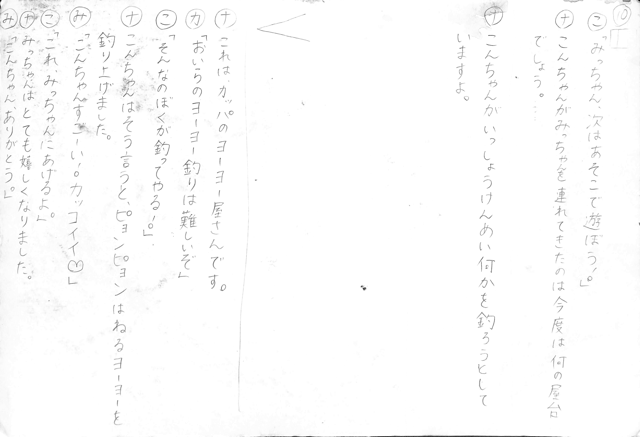 ⑩
こ「みっちゃん、次はあそこで遊ぼう!」
ナ こんちゃんがみっちゃんを連れてきたのは今度は何の屋台
でしょう。…
ナ こんちゃんがいっしょうけんめい何かを釣ろうとして
いますよ。
ナ これは、カッパのヨーヨー屋さんです。
カ「おいらのヨーヨー釣りは難しいぞ」
こ「そんなのぼくが釣ってやるー!」
ナ こんちゃんはそう言うと、ピョンピョンはねるヨーヨーを
釣り上げました。
み「こんちゃんすごーい!。カッコイイ♡」
こ「これ、みっちゃんにあげるよ。」
ナ みっちゃんはとても嬉しくなりました。
み「こんちゃんありがとう。」